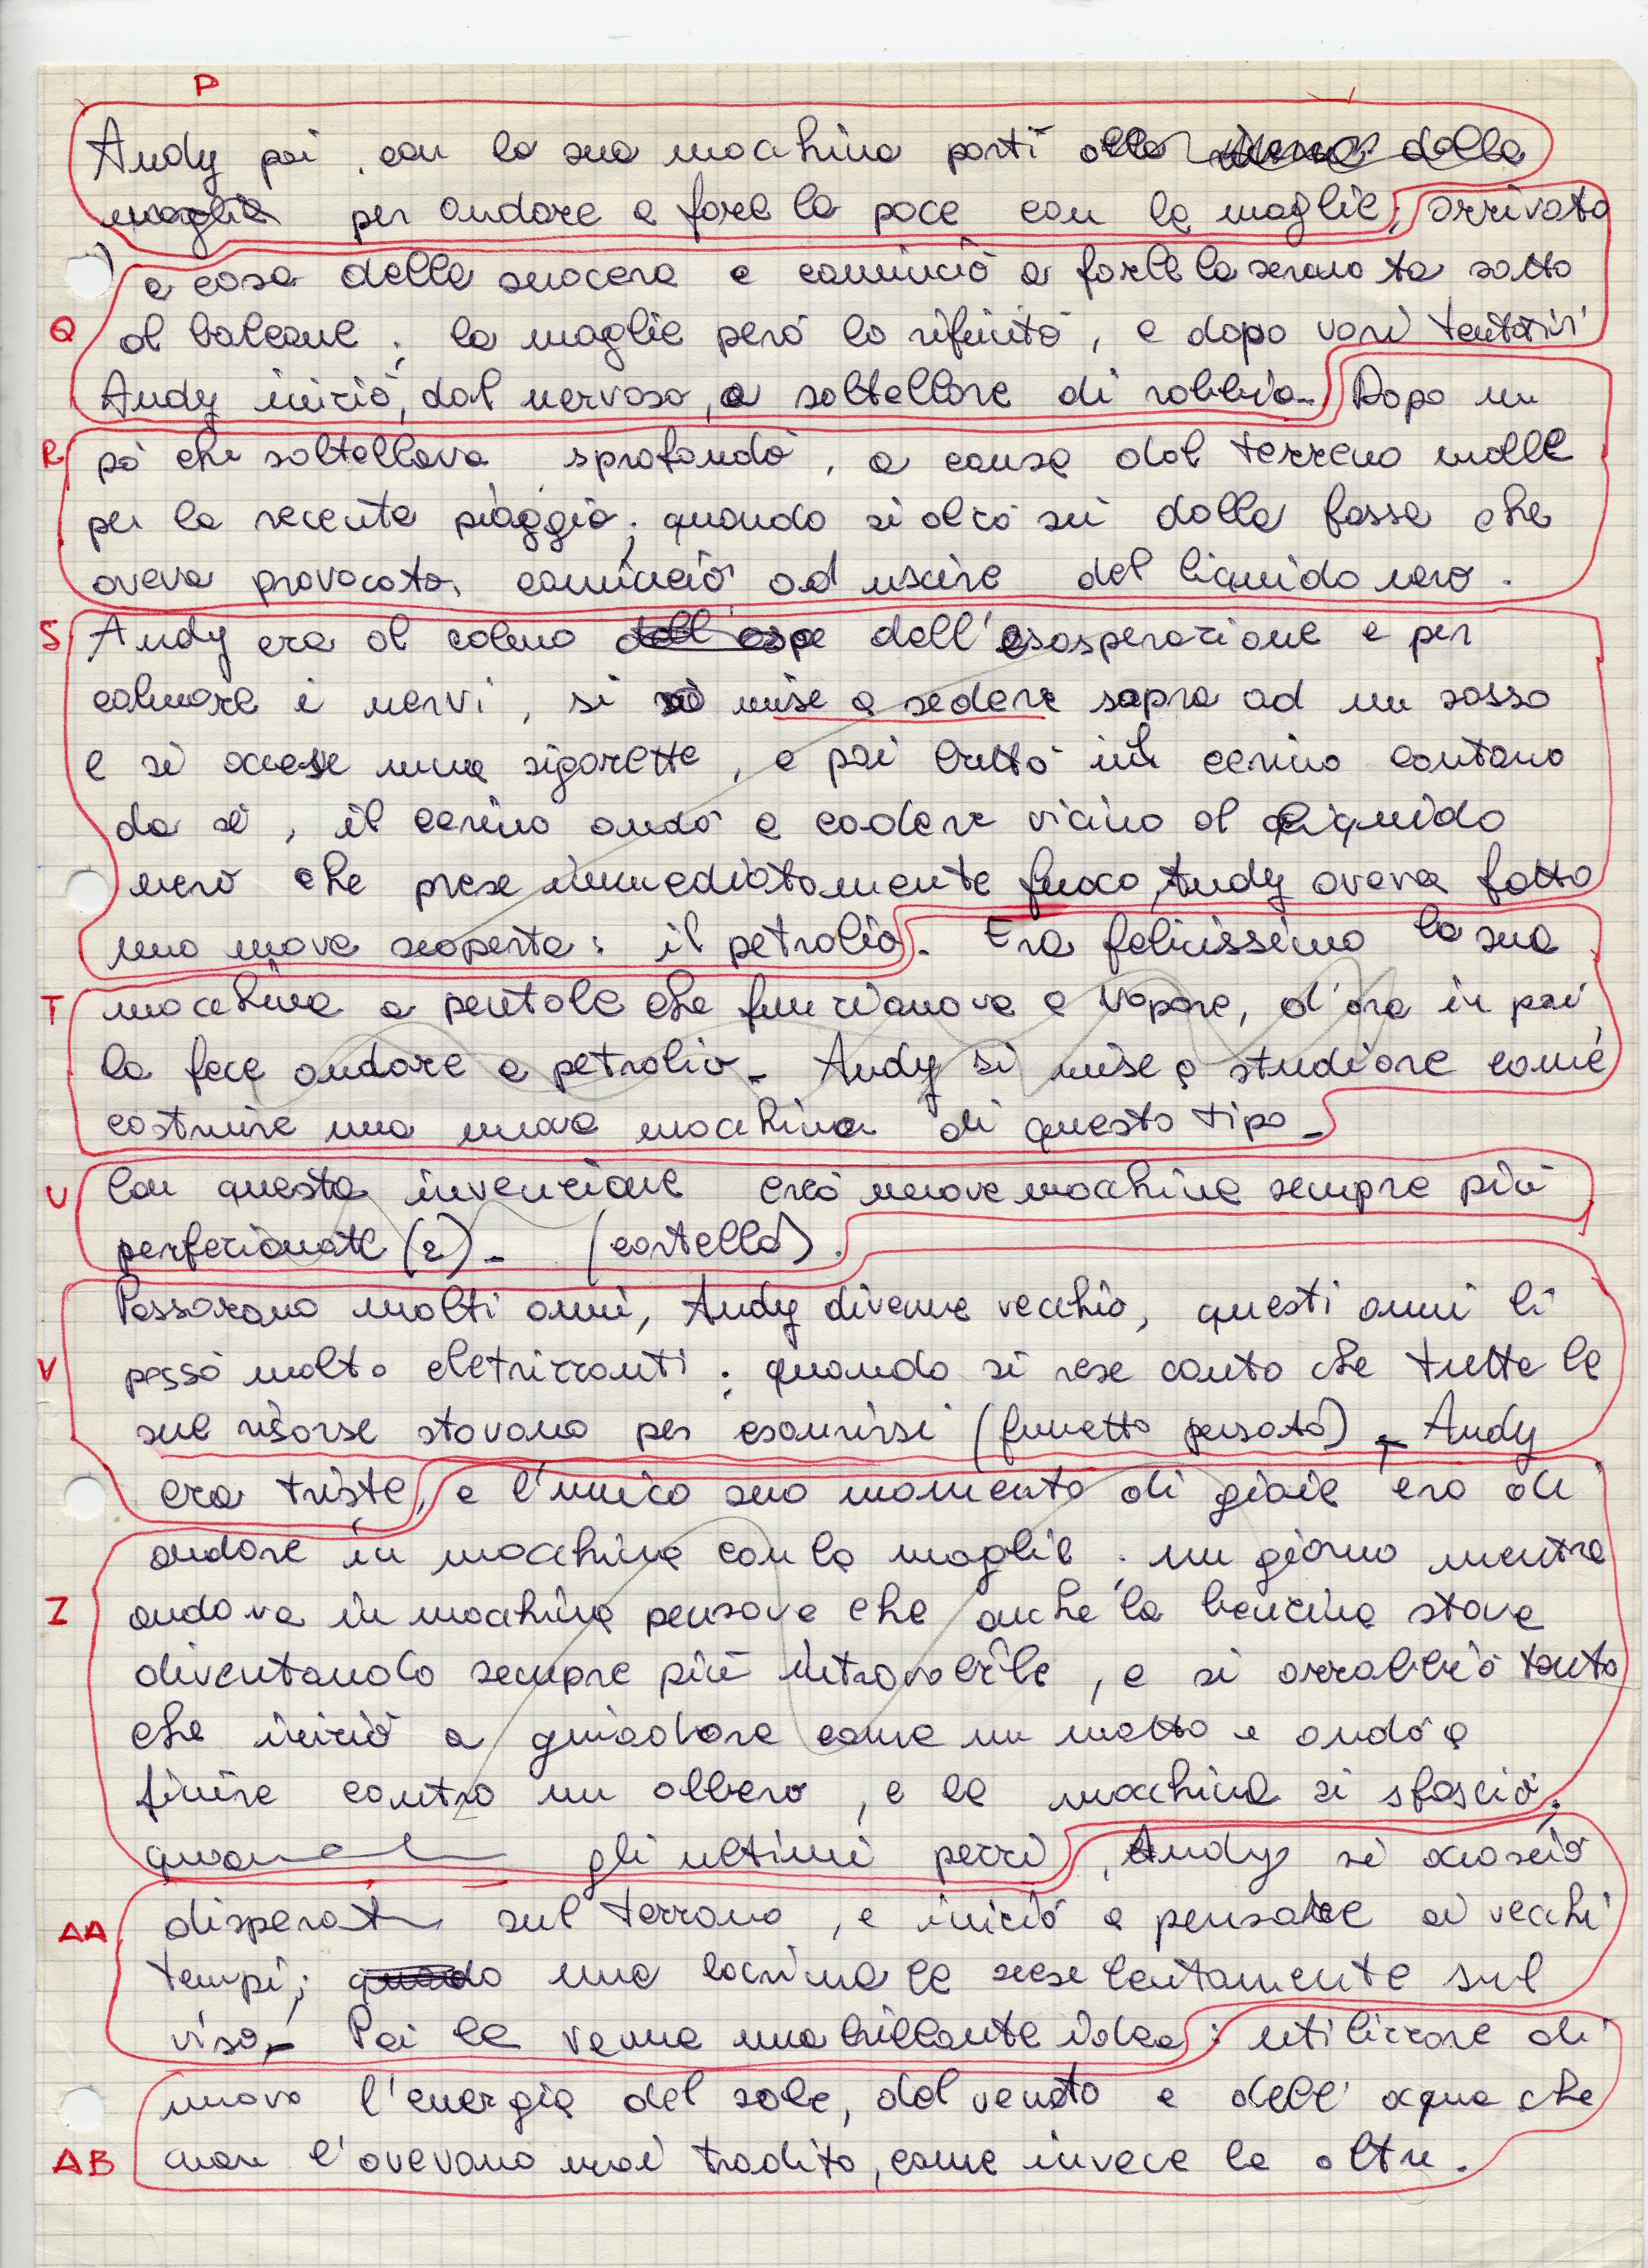 P
Andy poi, con la sua macchina partì alla della
moglie per andare a fare la pace con la moglie; arrivato
a casa della suocera e cominciò a farle la serenata sotto
Q al balcone; la moglie però lo rifiutò, e dopo vari tentativi
Andy iniziò, dal nervoso, a saltellare di rabbia. Dopo un
R pò che saltellava sprofondò, a causa del terreno molle
per la recente pioggia; quando si alzò sù dalla fossa che
aveva provocato, cominciò ad uscire del liquido nero.
S Andy era al colmo dell'esa dell'esasperazione e per
calmare i nervi, si mise a sedere sopra ad un sasso
e si accese una sigaretta, e poi buttò il cerino lontano
da sè, il cerino andò a cadere vicino al liquido
nero che prese immediatamente fuoco, Andy aveva fatto
una nuova scoperta: il petrolio. Era felicissimo la sua
T macchina a pentole che funzionava a vapore, d'ora in poi
la fece andare a petrolio. Andy si mise a studiare come
costruire una nuova macchina di questo tipo.
U Con questa invenzione creò nuove macchine sempre più
perfezionate (2). (cartello).
Passarono molti anni, Andy divenne vecchio, questi anni li
V passò molto eletrizzanti; quando si rese conto che tutte le
sue risorse stavano per esaurirsi (fumetto pensato). Andy
era triste, e l'unico suo momento di gioia era di
andare in macchina con la moglie; un giorno mentre
Z andava in macchina pensava che anche la benzina stava
diventando sempre più introvabile, e si arrabbiò tanto
che iniziò a guidare come un matto e andò a
finire contro un albero, e la macchina si sfasciò;
gli ultimi pezzi, Andy si accasciò
AA disperato sul terreno, e iniziò a pensare ai vecchi
tempi; quando una lacrima le scese lentamente sul
viso. Poi le venne una brillante idea: utilizzare di
nuovo l'energia del sole, del vento e dell'acqua che
AB non l'avevano mai tradito, come invece le altre.